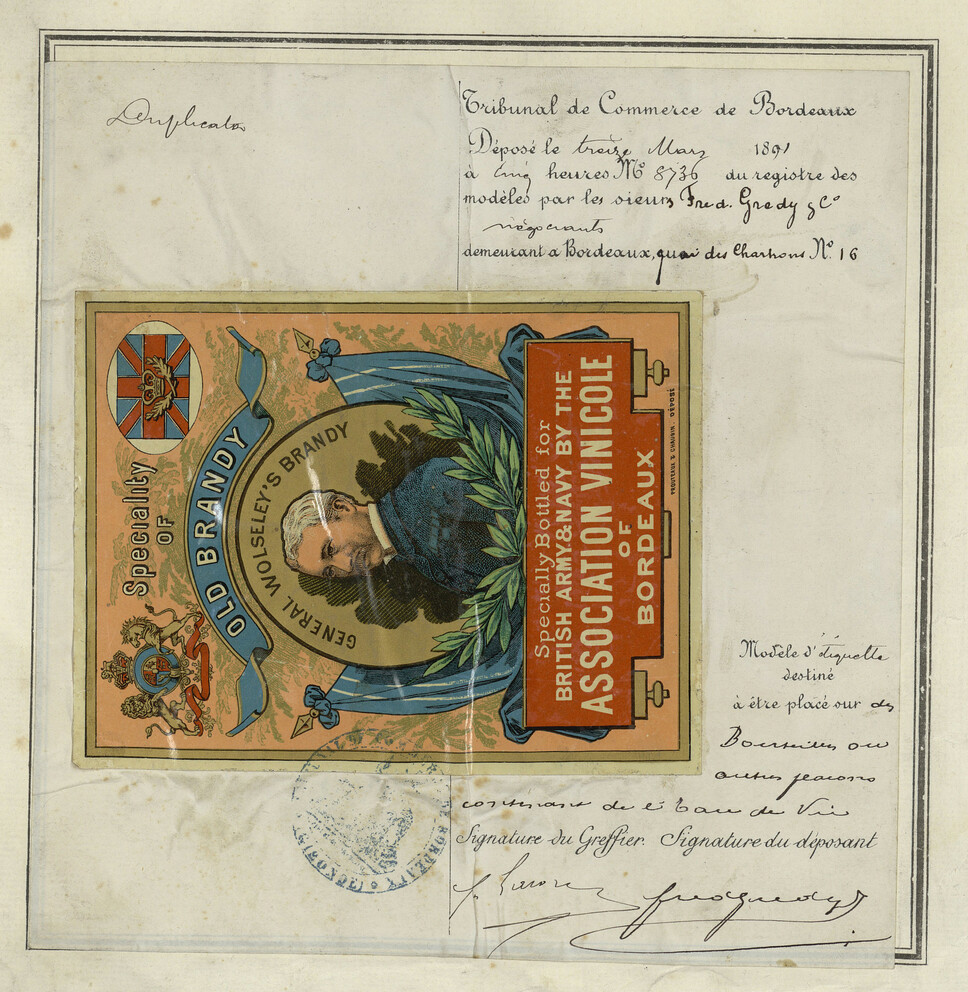 Duplicata
Tribunal de Commerce de Bordeaux
Déposé le treize Mars 1891
à cinq heures No 8736 du registre des
modèles par les sieurs Fred. Gredy & Co
négociants
demeurant a Bordeaux, quai des Chartrons No. 16
Speciality
OF
OLD BRANDY
GENERAL WOLSELEY'S BRANDY
Specially Bottled for
BRITISH ARMY & NAVY BY THE
ASSOCIATION VINICOLE
OF
BORDEAUX
DÉPOSÉ
Modèle d'étiquette
destiné
à être placé sur des
Bouteilles ou
autres flacons
contenant de l'Eau de Vie
Signature du Greffier. Signature du déposant
fred gredy